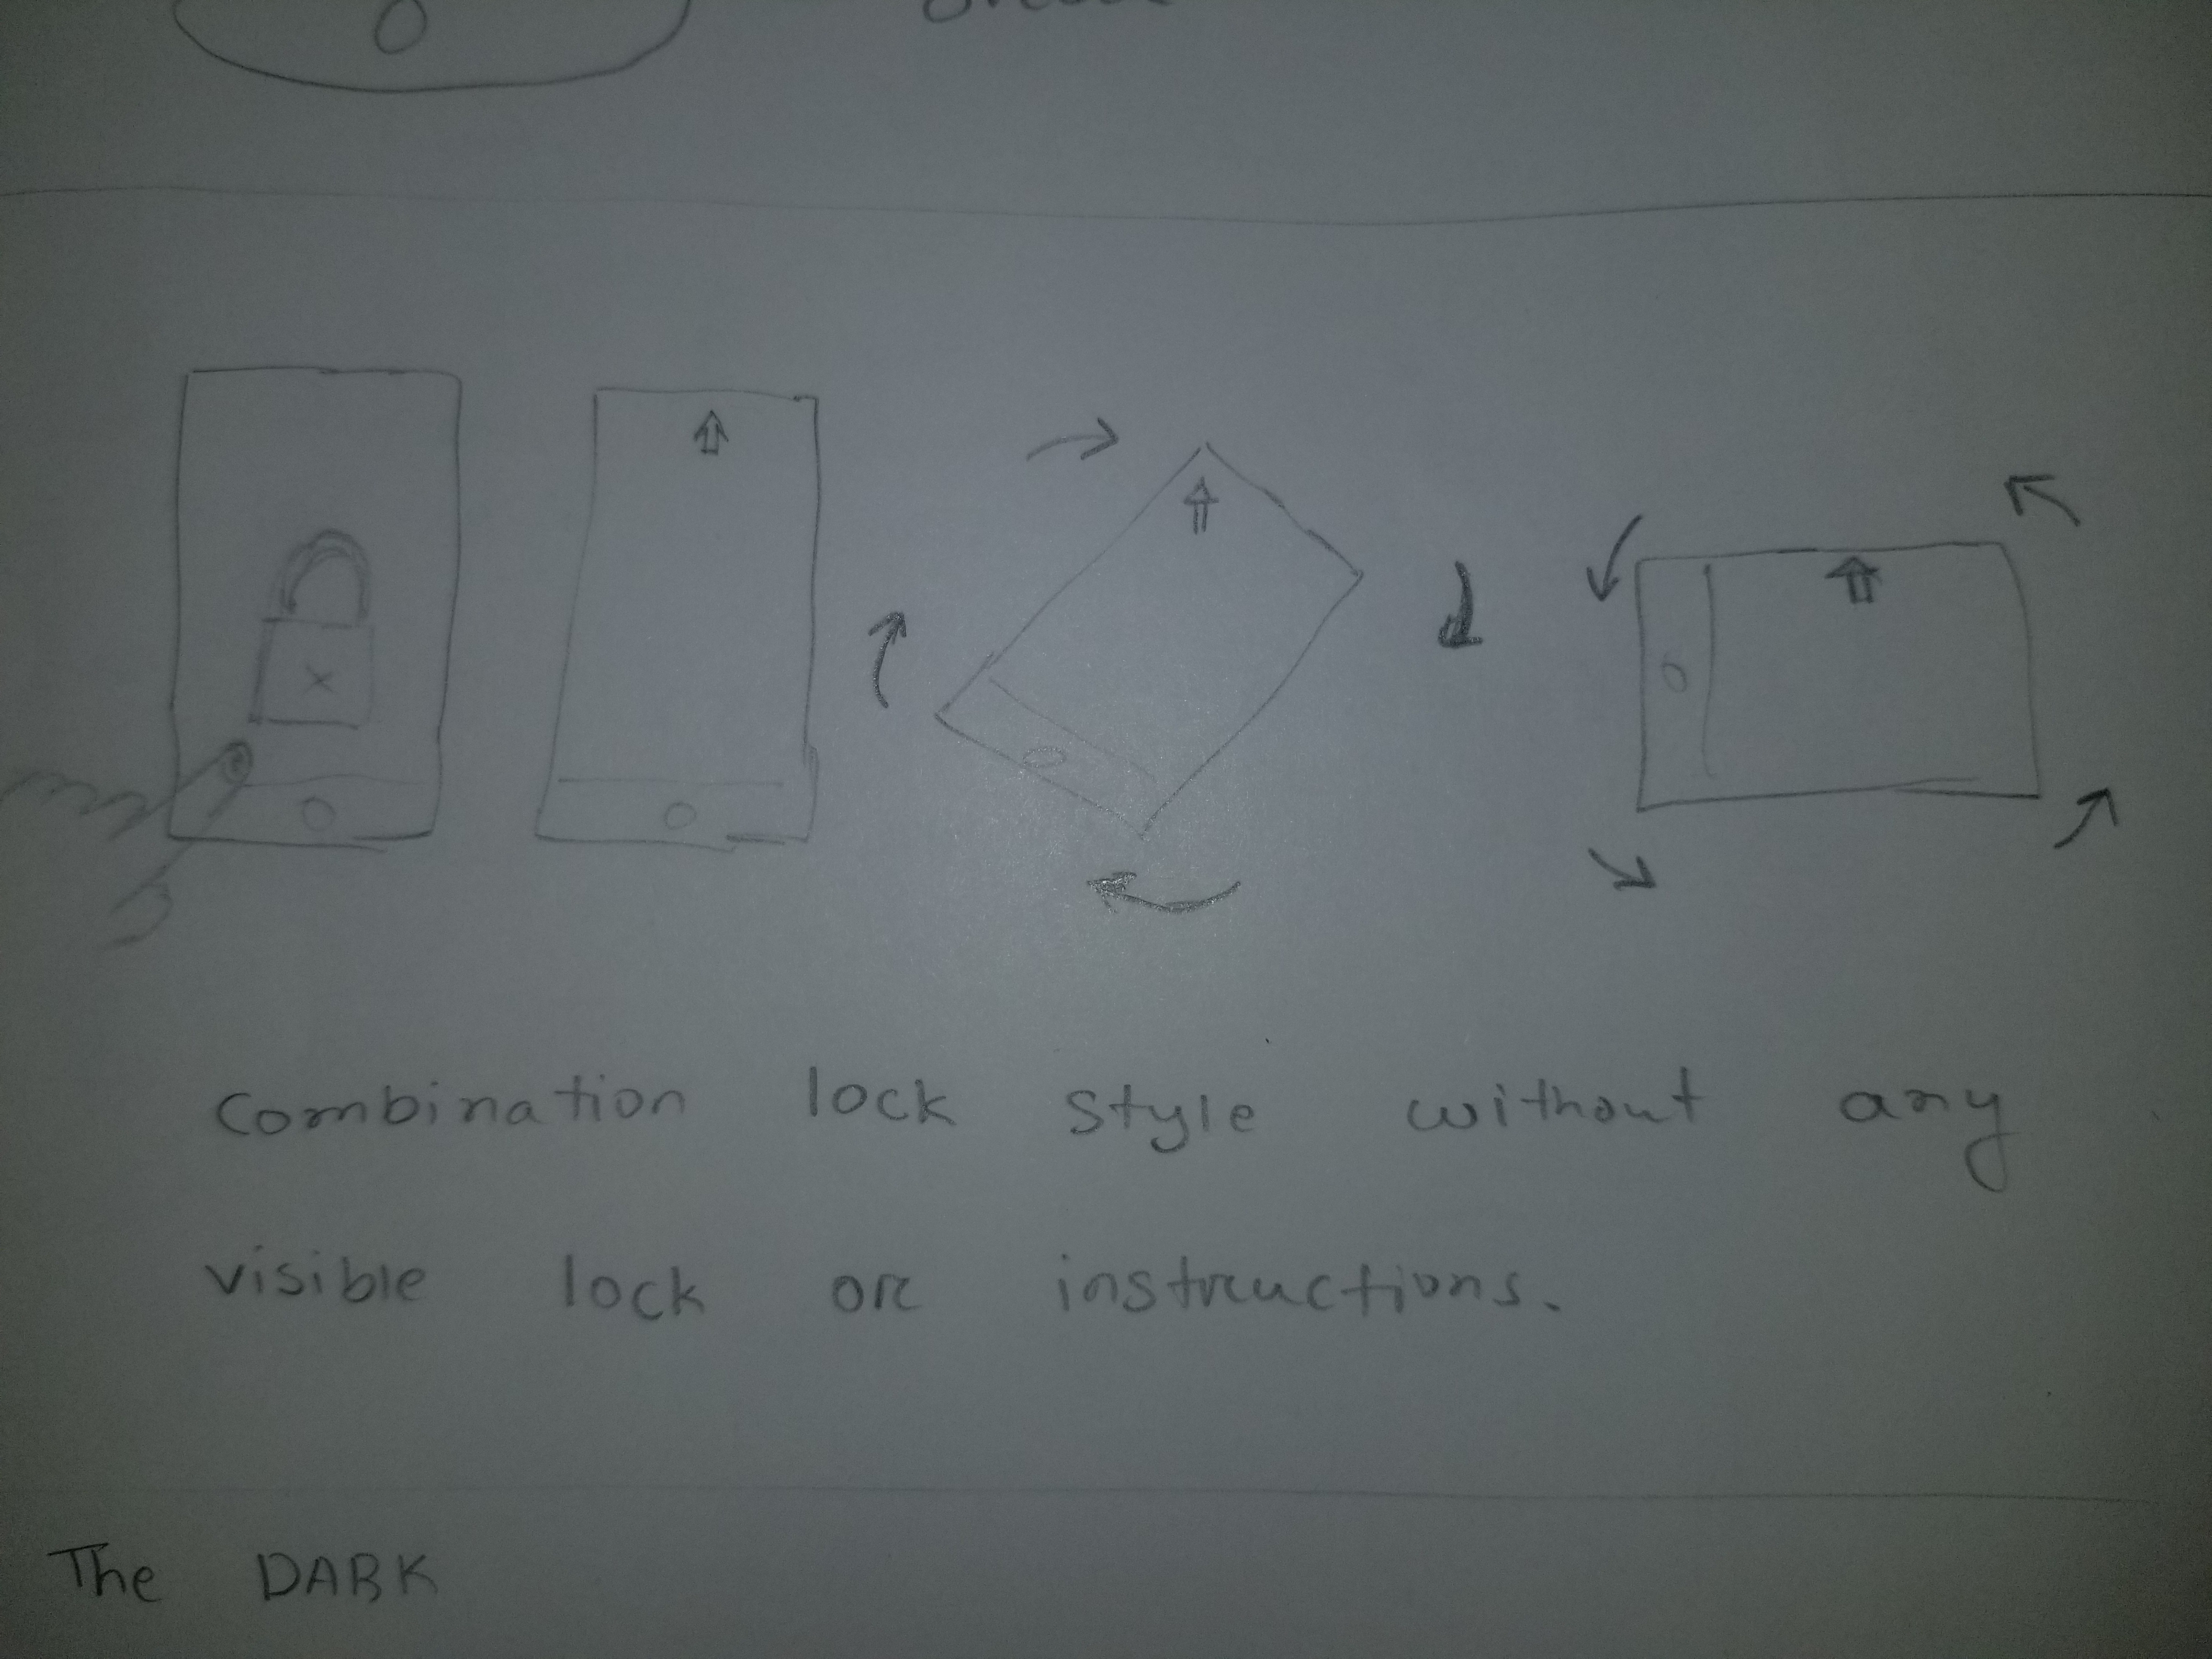 Combination lock style without any
visible lock or instructions.
The DARK